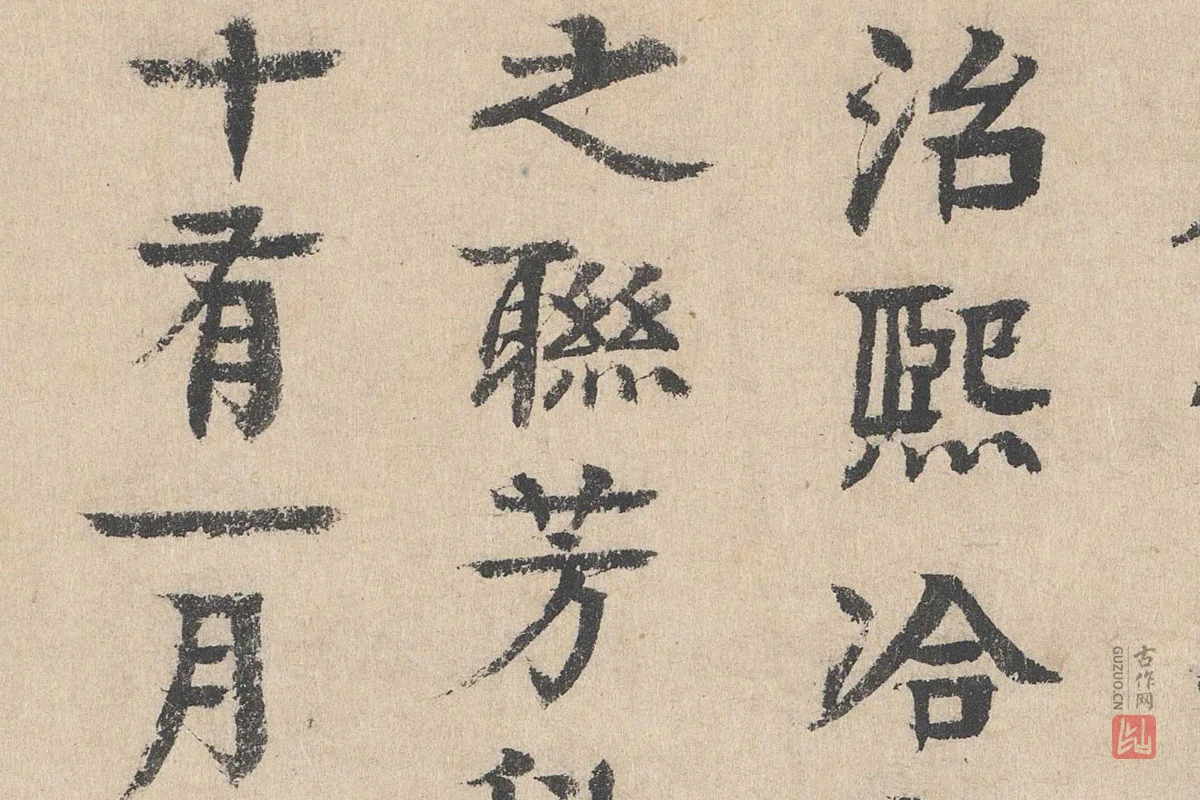 治熙洽
之聯芳
十有一月
古作网
GUZUO.CN